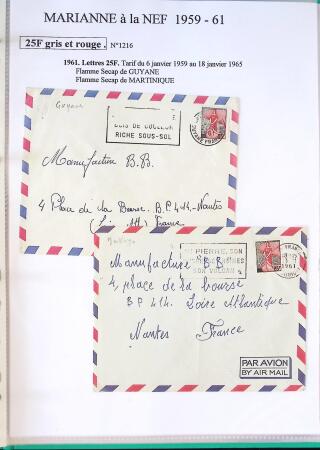 MARIANNE à la NEF 1959 - 61
25F gris et rouge . N°1216
1961. Lettres 25F. Tarif du 6 janvier 1959 au 18 janvier 1965
Flamme Secap de GUYANE
Flamme Secap de MARTINIQUE
Guyane
BOIS DE COULEUR
RICHE SOUS-SOL
Manufacture B.B.
4 Place de la Bourse. B.P 414. Nantes
France
PIERRE, SON
SON VOLCAN
1961
Manufacture B.B
4, place de la bourse
BP 414 Loire Atlantique
Nantes France
PAR AVION
BY AIR MAIL